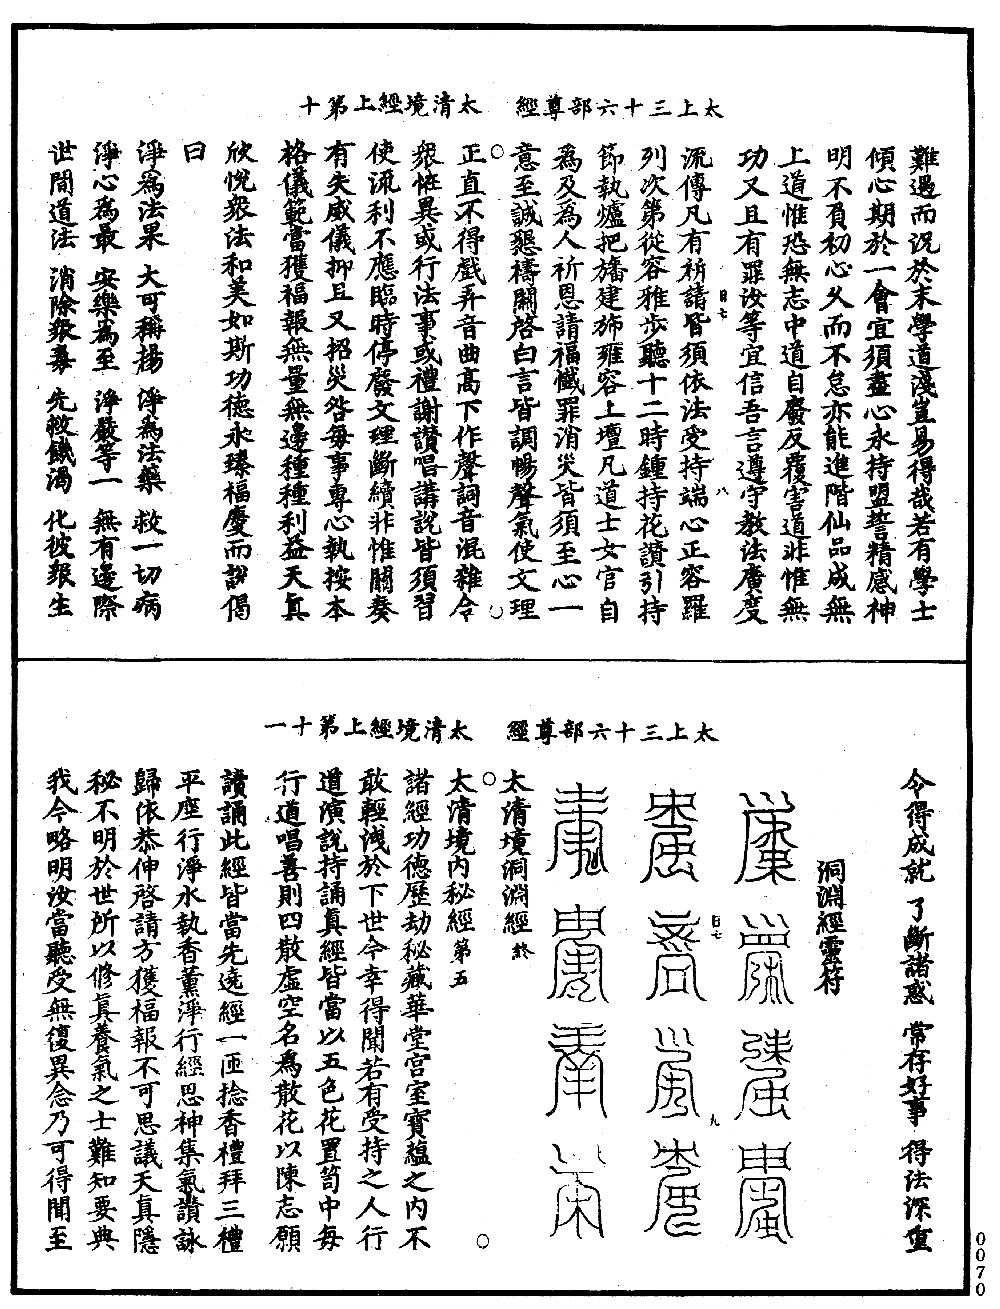 太上三十六部尊經　太清境經上第十
難遇而況於末學道淺豈易得哉若有學士
傾心期於一會宜須盡心永持盟誓精感神
明不負初心久而不怠亦能進階仙品成無
上道惟恐無志中道自廢反覆害道非惟無
功又且有罪汝等宜信吾言遵守教法廣度
流傳凡有祈請皆須依法受持端心正容羅
列次第從容雅步聽十二時鍾持花讚引持
節執爐把旛建斾雍容上壇凡道士女官自
為及為人祈恩請福懺罪消災皆須至心一
意至誠懇禱關啓白言皆調暢聲氣使文理
正直不得戲弄音曲高下作聲詞音混雜令
衆恠異或行法事或禮謝讚唱講說皆須習
使流利不應臨時停廢文理斷續非惟關奏
有失威儀抑且又招災咎每事專心執按本
格儀範當獲福報無量無邊種種利益天真
欣悅衆法和美如斯功德永臻福慶而說偈
曰
淨為法果　大可稱揚　淨為法藥　救一切病
淨心為最　安樂為至　淨嚴等一　無有邊際
世間道法　消除衆毒　先救饑渴　化彼衆生
太上三十六部尊經　太清境經上第十一
令得成就　了斷諸惑　常存好事　得法深重
洞淵經靈符
太清境洞淵經終
太清境內秘經第五
諸經功德歷劫秘藏華堂宮室寶蘊之內不
敢輕洩於下世今幸得聞若有受持之人行
道演說持誦真經皆當以五色花置笥中每
行道唱善則四散虛空名為散花以陳志願
讀誦此經皆當先遶經一匝捻香禮拜三禮
平座行淨水執香薰淨行經思神集氣讚詠
歸依恭伸啓請方獲福報不可思議天真隱
秘不明於世所以修真養氣之士難知要典
我今略明汝當聽受無復異念乃可得聞至
0070